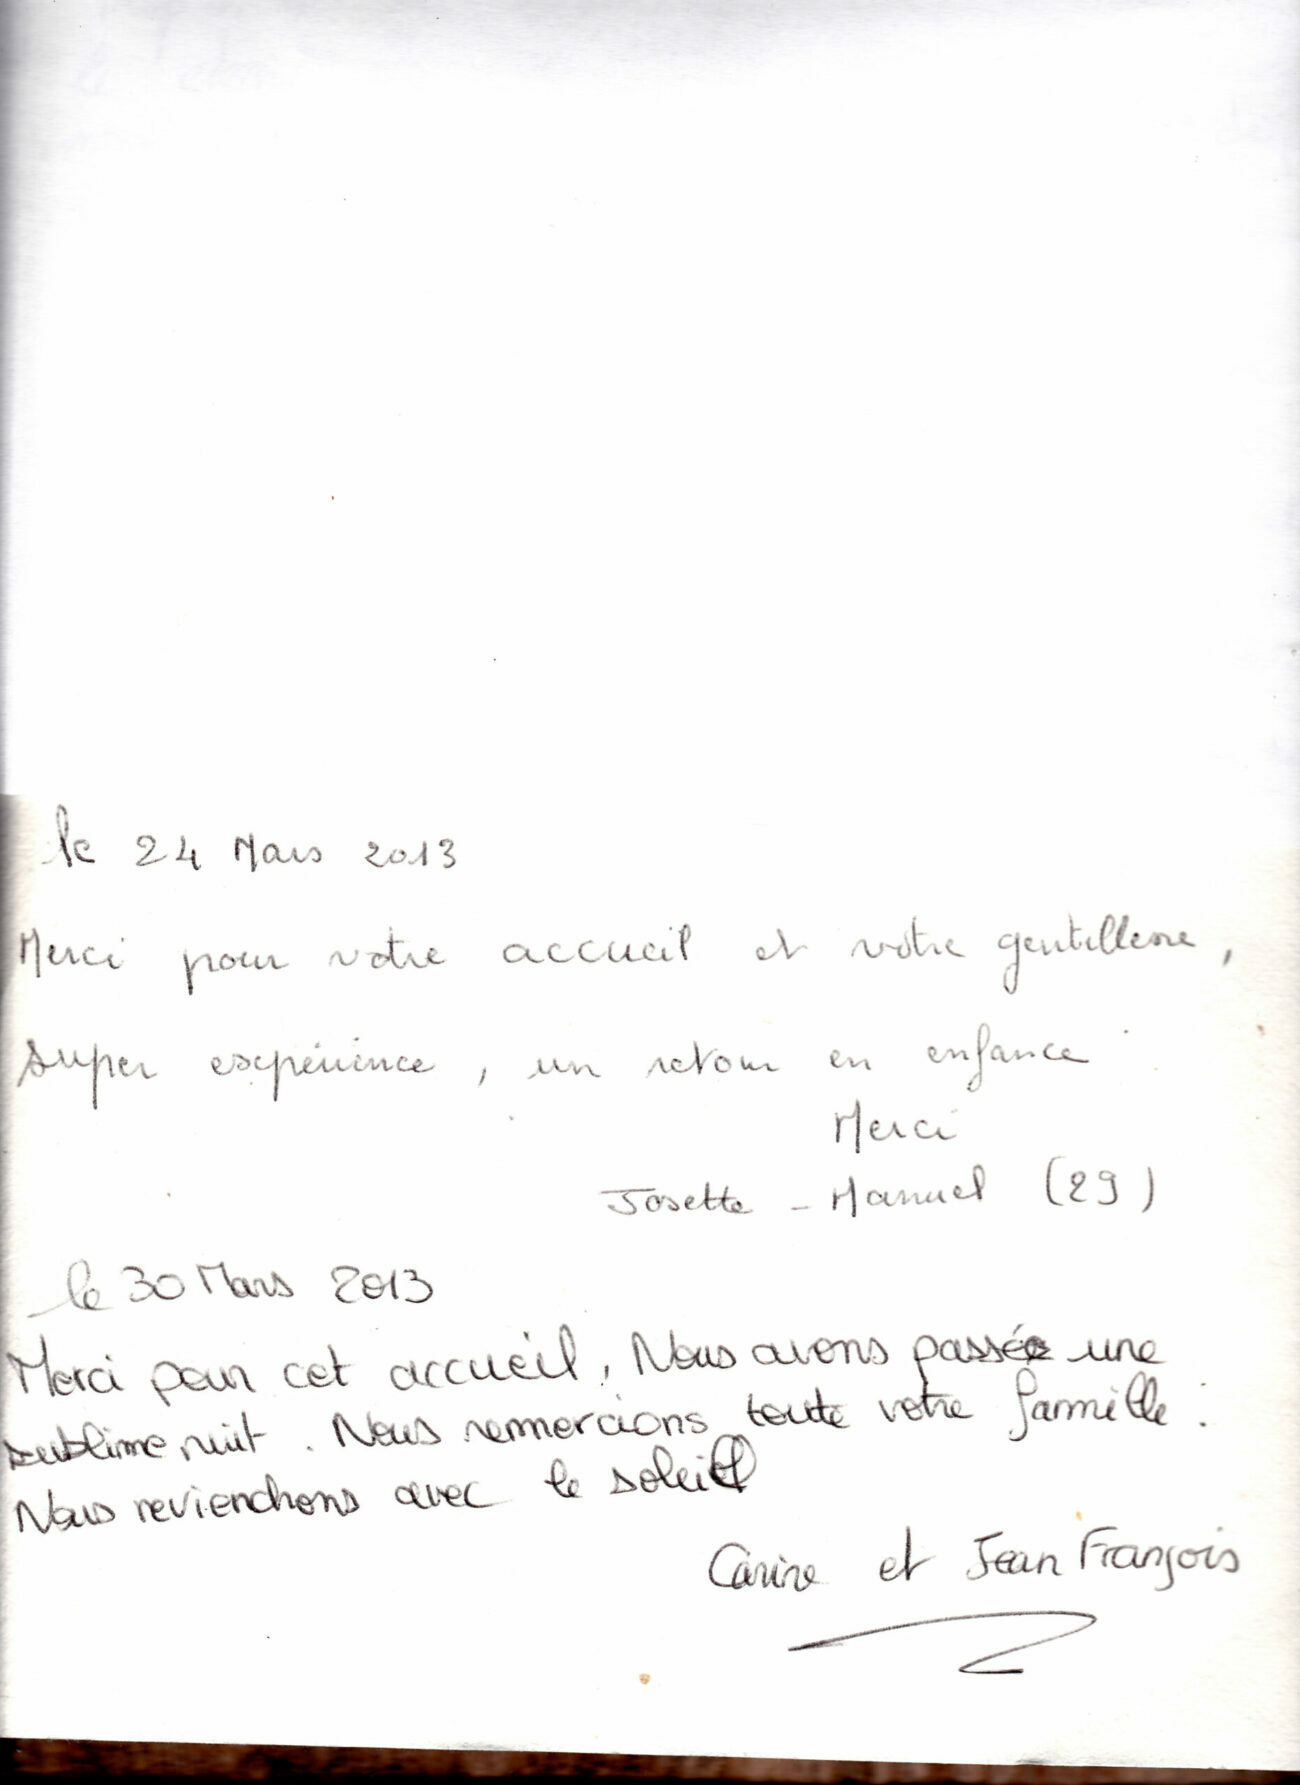 le 24 Mars 2013
Merci pour votre accueil et votre gentillesse,
super expérience, un retour en enfance
Merci
Josette - Manuel (29)
le 30 Mars 2013
Merci pour cet accueil, Nous avons passée une
sublime nuit. Nous remercions toute votre famille.
Nous reviendrons avec le soleil
Carine et Jean François